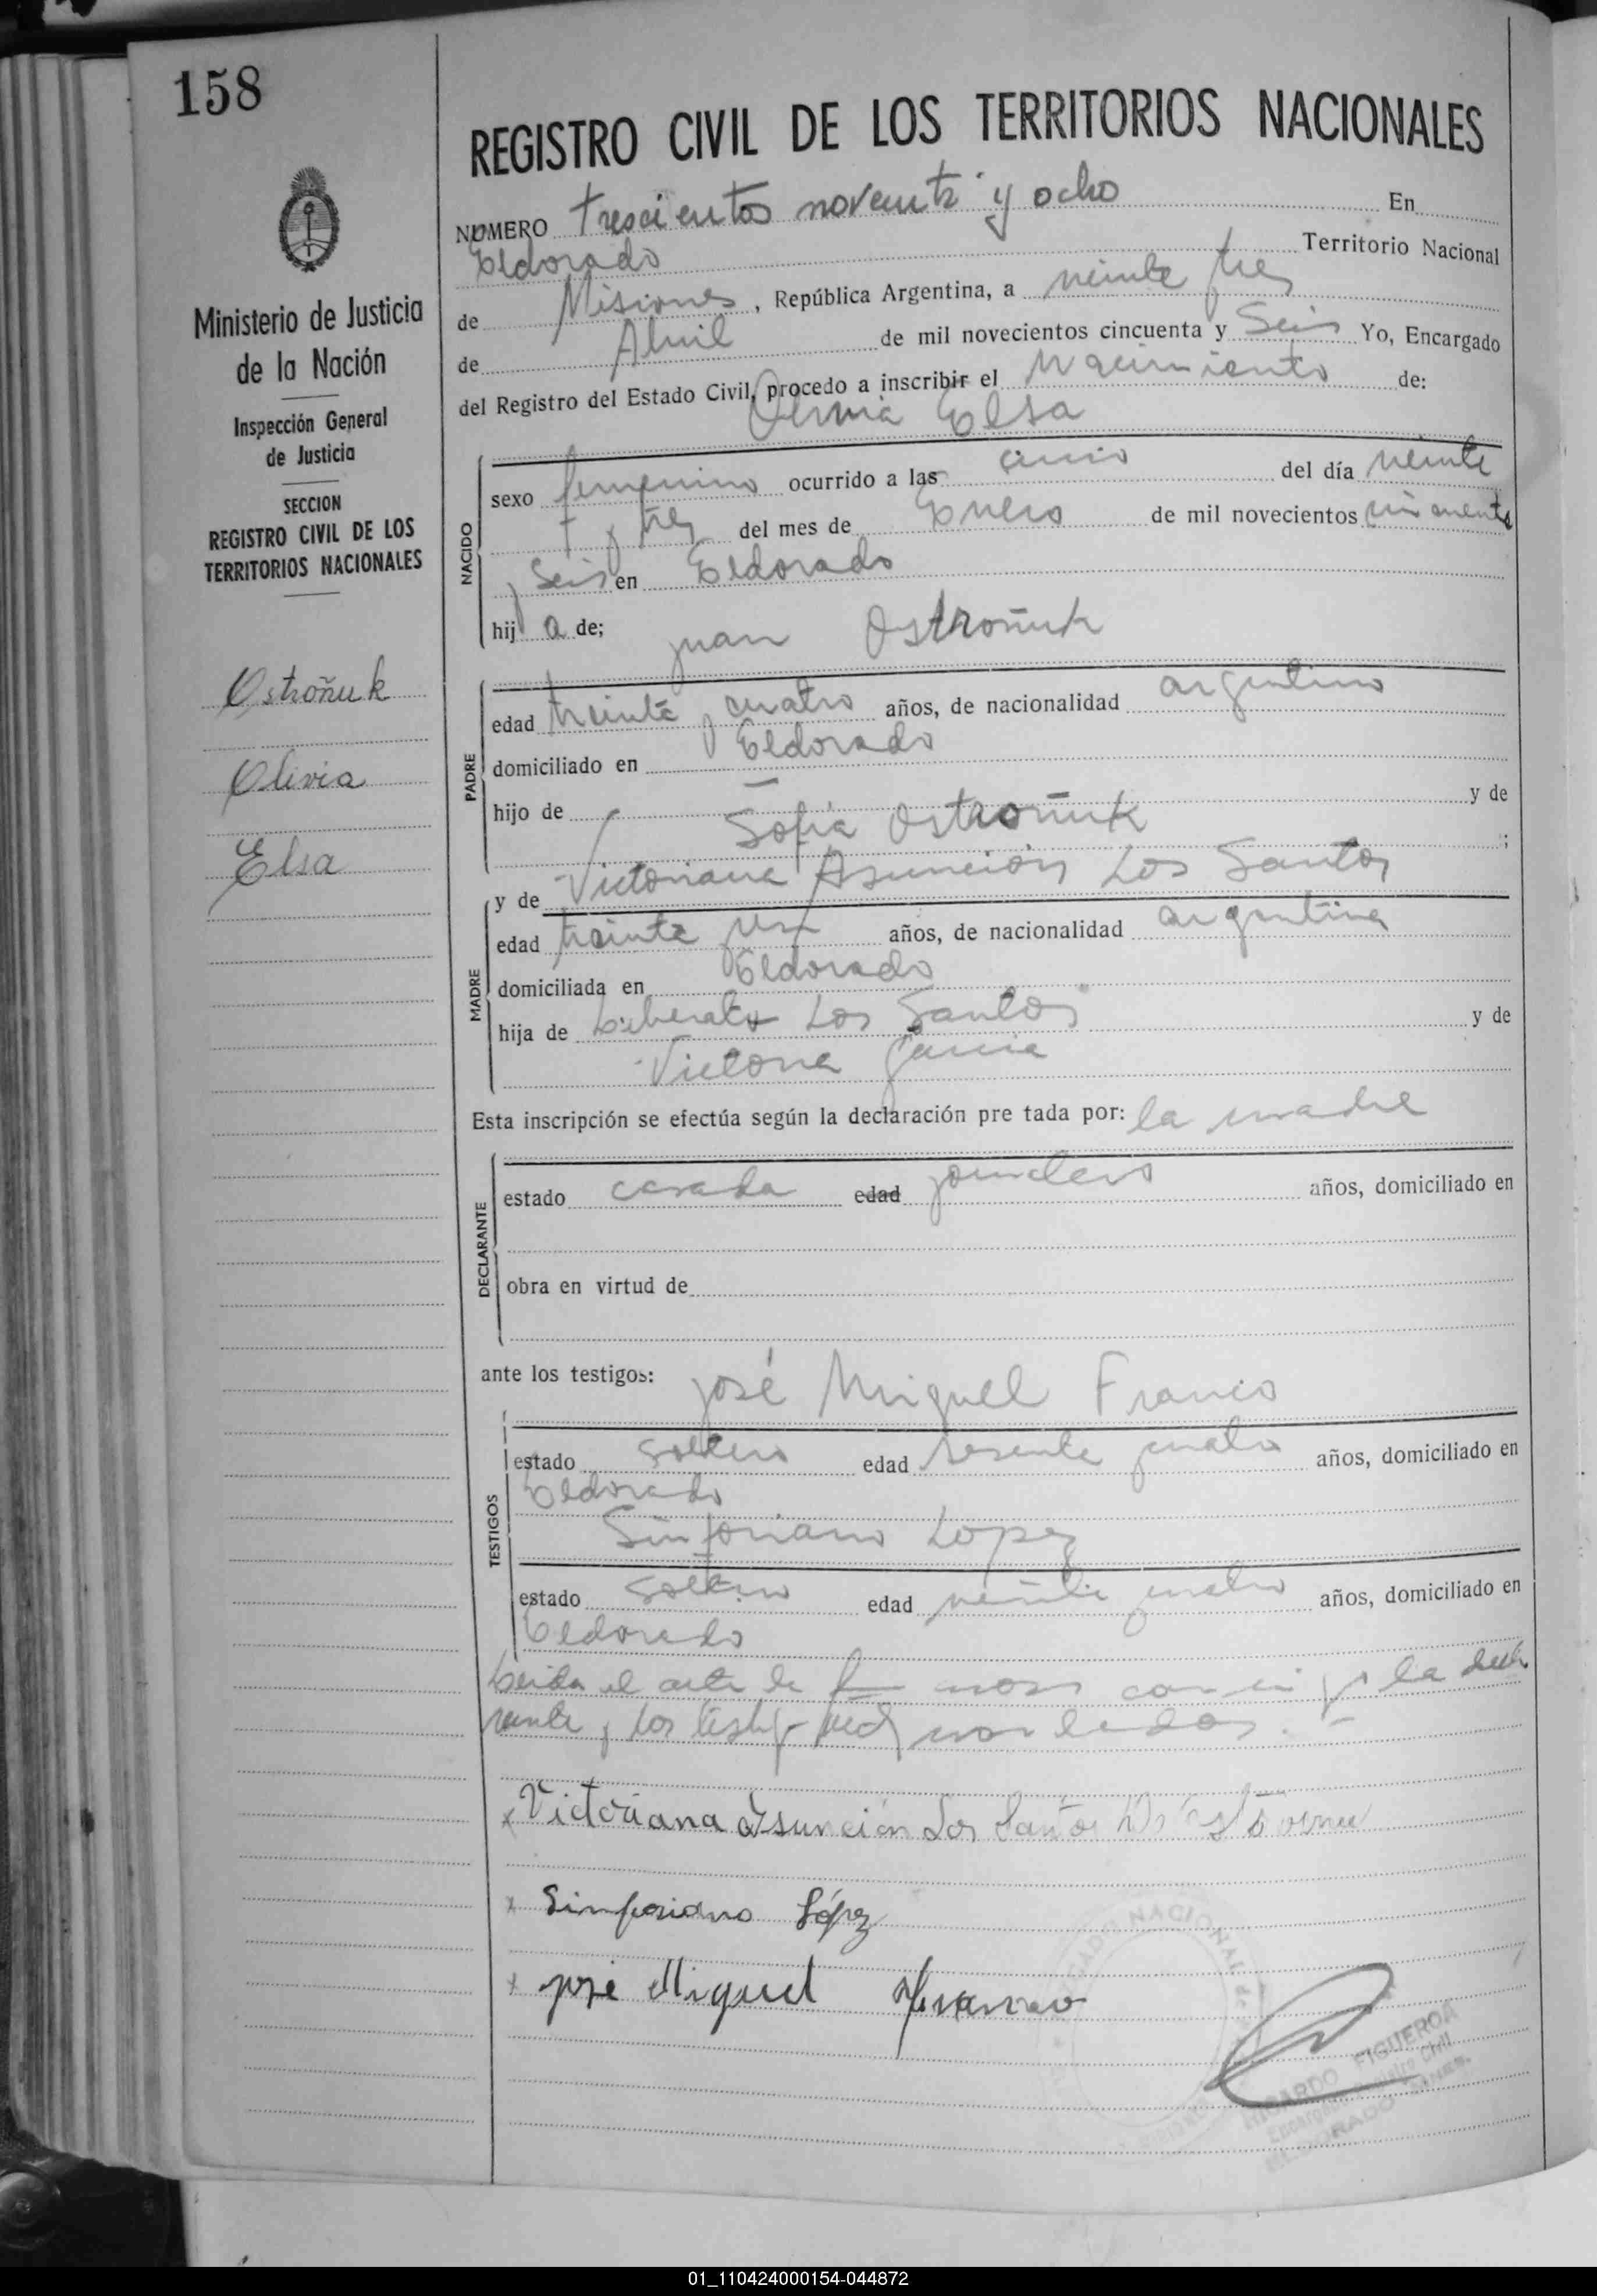 158
REGISTRO CIVIL DE LOS TERRITORIOS NACIONALES
Ministerio de Justicia
de la Nación
Inspección General
de Justicia
SECCION
REGISTRO CIVIL DE LOS
TERRITORIOS NACIONALES
Ostroñuk
Olivia
Elsa
NUMERO trescientos noventa y ocho En
Eldorado Territorio Nacional
de Misiones, República Argentina, a veinte tres
de Abril de mil novecientos cincuenta y Seis Yo, Encargado
del Registro del Estado Civil, procedo a inscribir el Nacimiento de:
Elsa
NACIDO
sexo femenino ocurrido a las cinco del día veinte
y tres del mes de Enero de mil novecientos cincuenta
y Seis en Eldorado
hij a de; Juan Ostroñuk
PADRE
edad treinta y cuatro años, de nacionalidad argentino
domiciliado en Eldorado
hijo de — y de
Sofia Ostroñuk ;
y de Victoriana Asunción Los Santos
MADRE
edad treinta años, de nacionalidad argentina
domiciliada en Eldorado
hija de Liberato Los Santos y de
Victoria Garcia
Esta inscripción se efectúa según la declaración pre tada por: la madre
DECLARANTE
estado casada edad años, domiciliado en
obra en virtud de
ante los testigos: José Miguel Franco
TESTIGOS
estado soltero edad sesenta cuatro años, domiciliado en
Eldorado
Sinforiano Lopez
estado soltero edad veinte cuatro años, domiciliado en
Eldorado
Leida el acta la la
y los
x Victoriana Asunción Los Santos
x Simforiano López
x José Miguel Franco
RICARDO FIGUEROA
ELDORADO
01_110424000154-044872